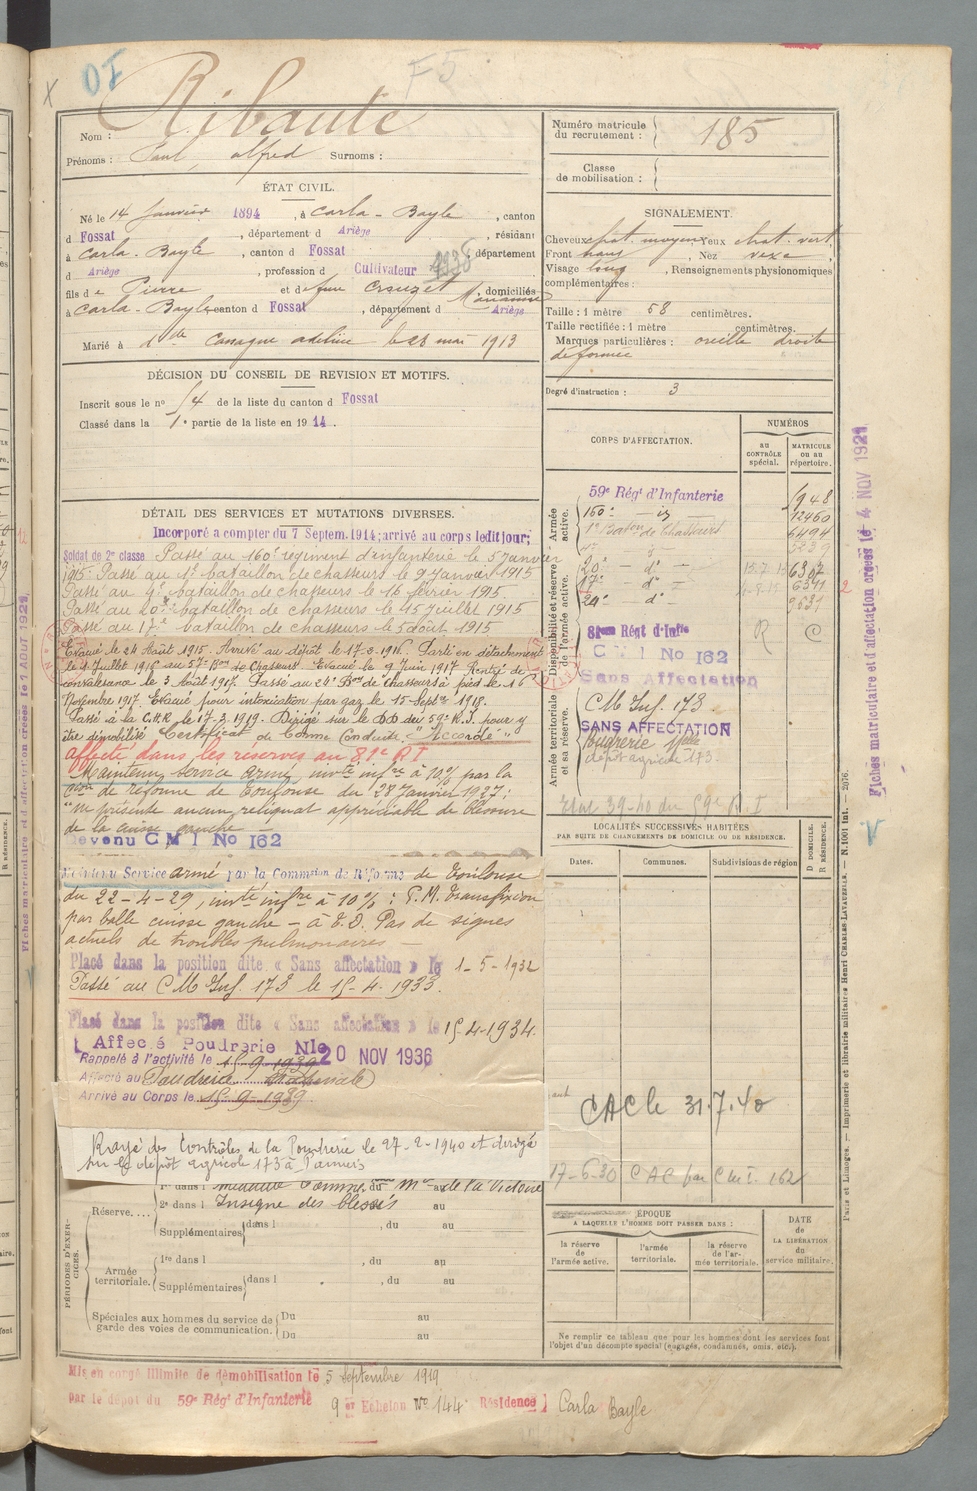 X
OI
F5
Ribaute
Nom :
Prénoms : Paul, alfred Surnoms :
ÉTAT CIVIL.
Né le 14 Janvier 1894, à Carla-Bayle, canton
d Fossat, département d Ariège, résidant
à Carla-Bayle, canton d Fossat, département
d Ariège, profession d Cultivateur
fils de Pierre et de Crouzet Marianne, domiciliés
à Carla-Bayle, canton d Fossat, département d Ariège
Marié à Canague adeline le 28 mai 1913
DÉCISION DU CONSEIL DE REVISION ET MOTIFS.
Inscrit sous le no 54 de la liste du canton d Fossat
Classé dans la 1e partie de la liste en 1914.
DÉTAIL DES SERVICES ET MUTATIONS DIVERSES.
Incorporé a compter du 7 Septem. 1914; arrivé au corps ledit jour;
Soldat de 2e classe Passé au 160e régiment d'infanterie le 5 janvier
1915. Passé au 1er bataillon de chasseurs le 9 Janvier 1915
Passé au 4e bataillon de chasseurs le 16 février 1915.
Passé au 20e bataillon de chasseurs le 15 Juillet 1915
Passé au 17e bataillon de chasseurs le 5 août 1915
Evacué le 24 Août 1915. Arrivé au dépôt le 17-3-1916. Parti en détachement
le 4 Juillet 1916 au 57e Bon de Chasseurs. Evacué le 9 Juin 1917 Rentré de
convalescence le 3 Août 1917. Passé au 24e Bon de Chasseurs à pied le 16
Novembre 1917. Evacué pour intoxication par gaz le 15 Septe 1918.
Passé à la C.P.R le 17-3-1919. Dirigé sur le DD du 59e R.I. pour y
être démobilisé Certificat de Bonne Conduite "Accordé"
affecté dans les réserves au 81e RI
Maintenu service armé, invté infre à 10% par la
Con de réforme de Toulouse du 28 Janvier 1927 :
"ne présente aucun reliquat appréciable de blessure
de la cuisse gauche —
Devenu C M I No 162
Maintenu Service armé par la Commsion de Réforme de Toulouse
du 22-4-29, invté infre à 10% : P.M. transfixion
par balle cuisse gauche — à E.D. Pas de signes
actuels de troubles pulmonaires —
Placé dans la position dite « Sans affectation » le 1-5-1932
Passé au C M Inf. 173 le 15-4-1933.
Placé dans la position dite « Sans affectation » le 15-4-1934.
Affecté Poudrerie Nle 20 NOV 1936
Rappelé à l'activité le 15-9-1939
Affecté au Poudrerie Nationale
Arrivé au Corps le 15-9-1939
Rayé des Contrôles de la Poudrerie le 27-2-1940 et dirigé
sur le dépôt agricole 173 à Pamiers
1re dans l médaille Comm. de la Victoire
PÉRIODES D'EXERCICES.
Réserve....
2e dans l Insigne des blessés au
Supplémentaires dans l , du au
Armée territoriale.
1re dans l , du au
Supplémentaires dans l , du au
Spéciales aux hommes du service de garde des voies de communication.
Du au
Du au
Mis en congé illimité de démobilisation le 5 Septembre 1919
par le dépôt du 59e Rég. d'Infanterie 9 er Echelon No 144 Résidence Carla Bayle
Numéro matricule du recrutement : 185
Classe de mobilisation :
SIGNALEMENT.
Cheveux chat. moyen Yeux chat. vert
Front haut, Nez vexe,
Visage long, Renseignements physionomiques
complémentaires :
Taille : 1 mètre 58 centimètres.
Taille rectifiée : 1 mètre centimètres.
Marques particulières : oreille droite
deformée
Degré d'instruction : 3
CORPS D'AFFECTATION.
NUMÉROS
au CONTRÔLE spécial.
MATRICULE ou au répertoire.
Armée active.
59e Régt d'Infanterie 1948
160e — 12460
1er Baton de Chasseurs 6494
Disponibilité et réserve de l'armée active.
20e — d° — 6307
17e — d° — 6391
24e — d° —
81eme Régt d'Infie R C
C M I No 162
Sans Affectation
Armée territoriale et sa réserve.
C M Inf. 173
SANS AFFECTATION
Poudrerie Nale
dépôt agricole 173.
Etat 39-40 du 59e R.I
LOCALITÉS SUCCESSIVES HABITÉES
PAR SUITE DE CHANGEMENTS DE DOMICILE OU DE RÉSIDENCE.
Dates. Communes. Subdivisions de région
D DOMICILE. R RÉSIDENCE.
CAC le 31.7.40
17-6-30 CAC par CMI. 162
EPOQUE
A LAQUELLE L'HOMME DOIT PASSER DANS :
la réserve de l'armée active.
l'armée territoriale.
la réserve de l'armée territoriale.
DATE de LA LIBÉRATION du service militaire.
Ne remplir ce tableau que pour les hommes dont les services font
l'objet d'un décompte spécial (engagés, condamnés, omis, etc.).
Fiches matriculaire et d'affectation créées le 4 NOV 1921
Paris et Limoges. — Imprimerie et librairie militaires Henri CHARLES-LAVAUZELLE. — N. 1001 Int. — 2976.
Fiches matriculaire et d'affectation créées le 1 AOUT 1921